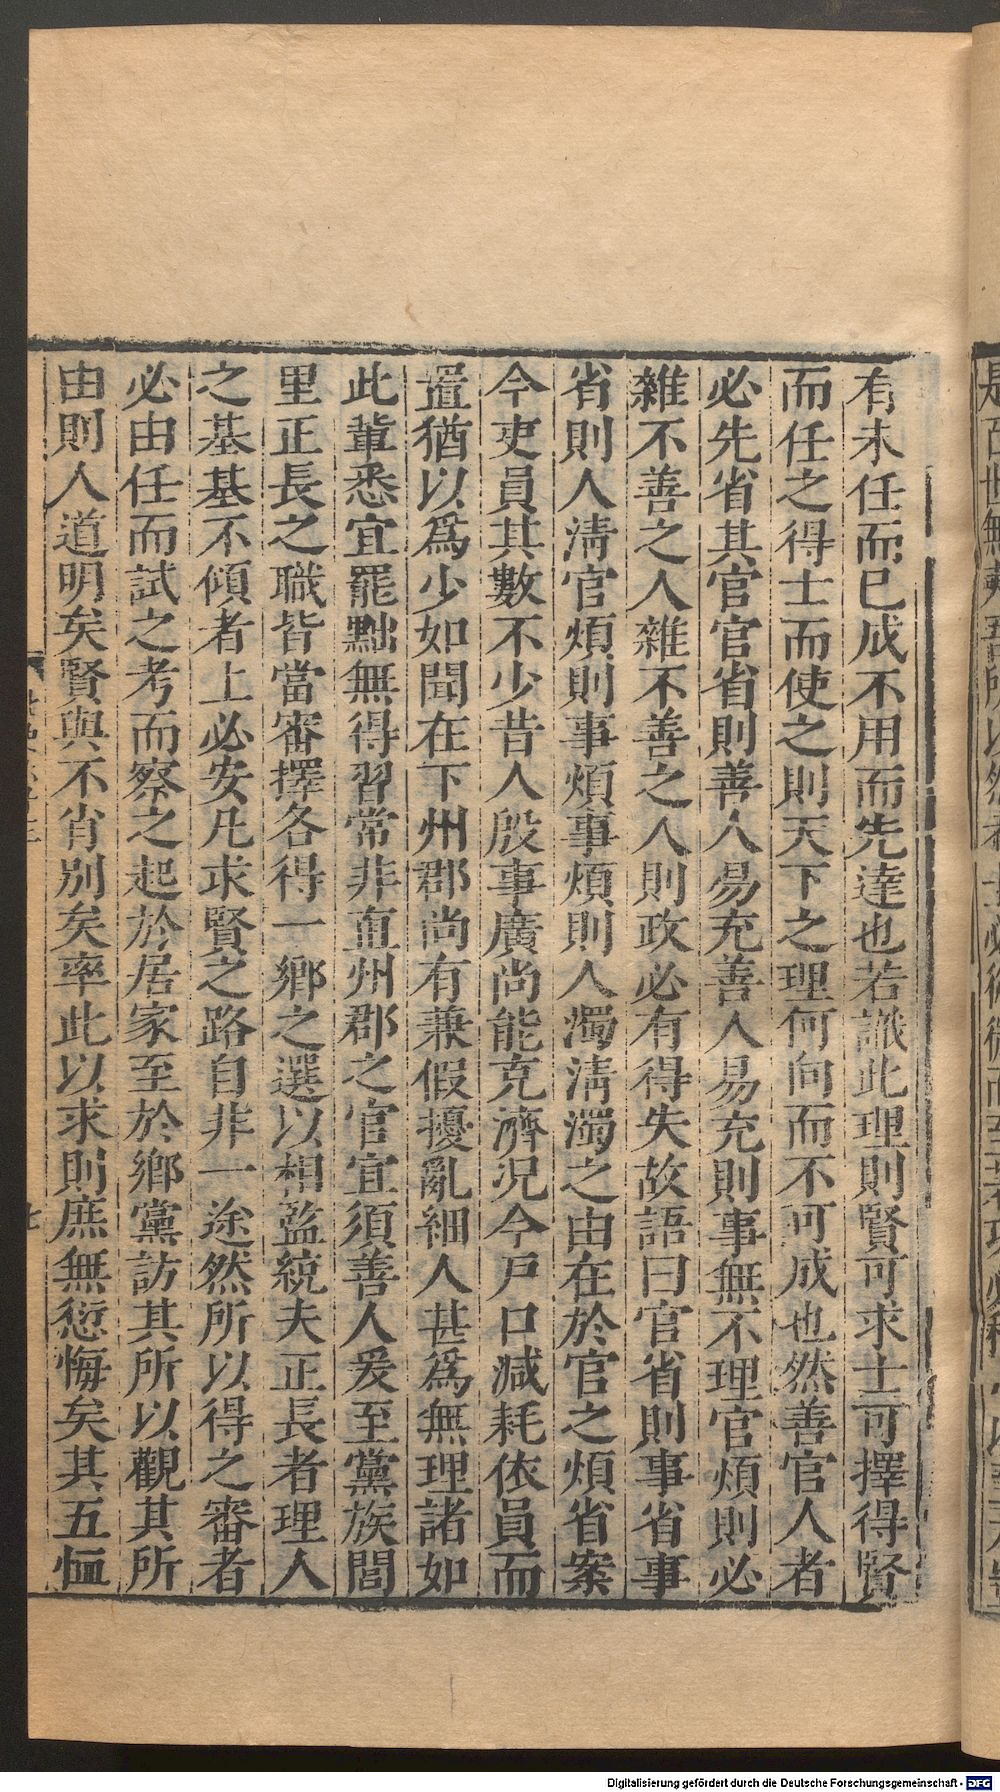 有未任而已成不用而先達也若識此理則賢可求士可擇得賢
而任之得士而使之則天下之理何向而不可成也然善官人者
必先省其官官省則善人易充善人易充則事無不理官煩則必
雜不善之人雜不善之人則政必有得失故語曰官省則事省事
省則人淸官煩則事煩事煩則人濁淸濁之由在於官之煩省案
今吏員其數不少昔人殷事廣尚能克濟况今戶口減耗依員而
置猶以爲少如聞在下州郡尚有兼假擾亂細人甚爲無理諸如
此輩悉宜罷黜無得習常非直州郡之官宜須善人爰至黨族閭
里正長之職皆當審擇各得一鄉之選以相監統夫正長者理人
之基基不傾者上必安凡求賢之路自非一途然所以得之審者
必由任而試之考而察之起於居家至於鄉黨訪其所以觀其所
由則人道明矣賢與不肖別矣率此以求則庶無愆悔矣其五恤
七
Digitalisierung gefördert durch die Deutsche Forschungsgemeinschaft - DFG